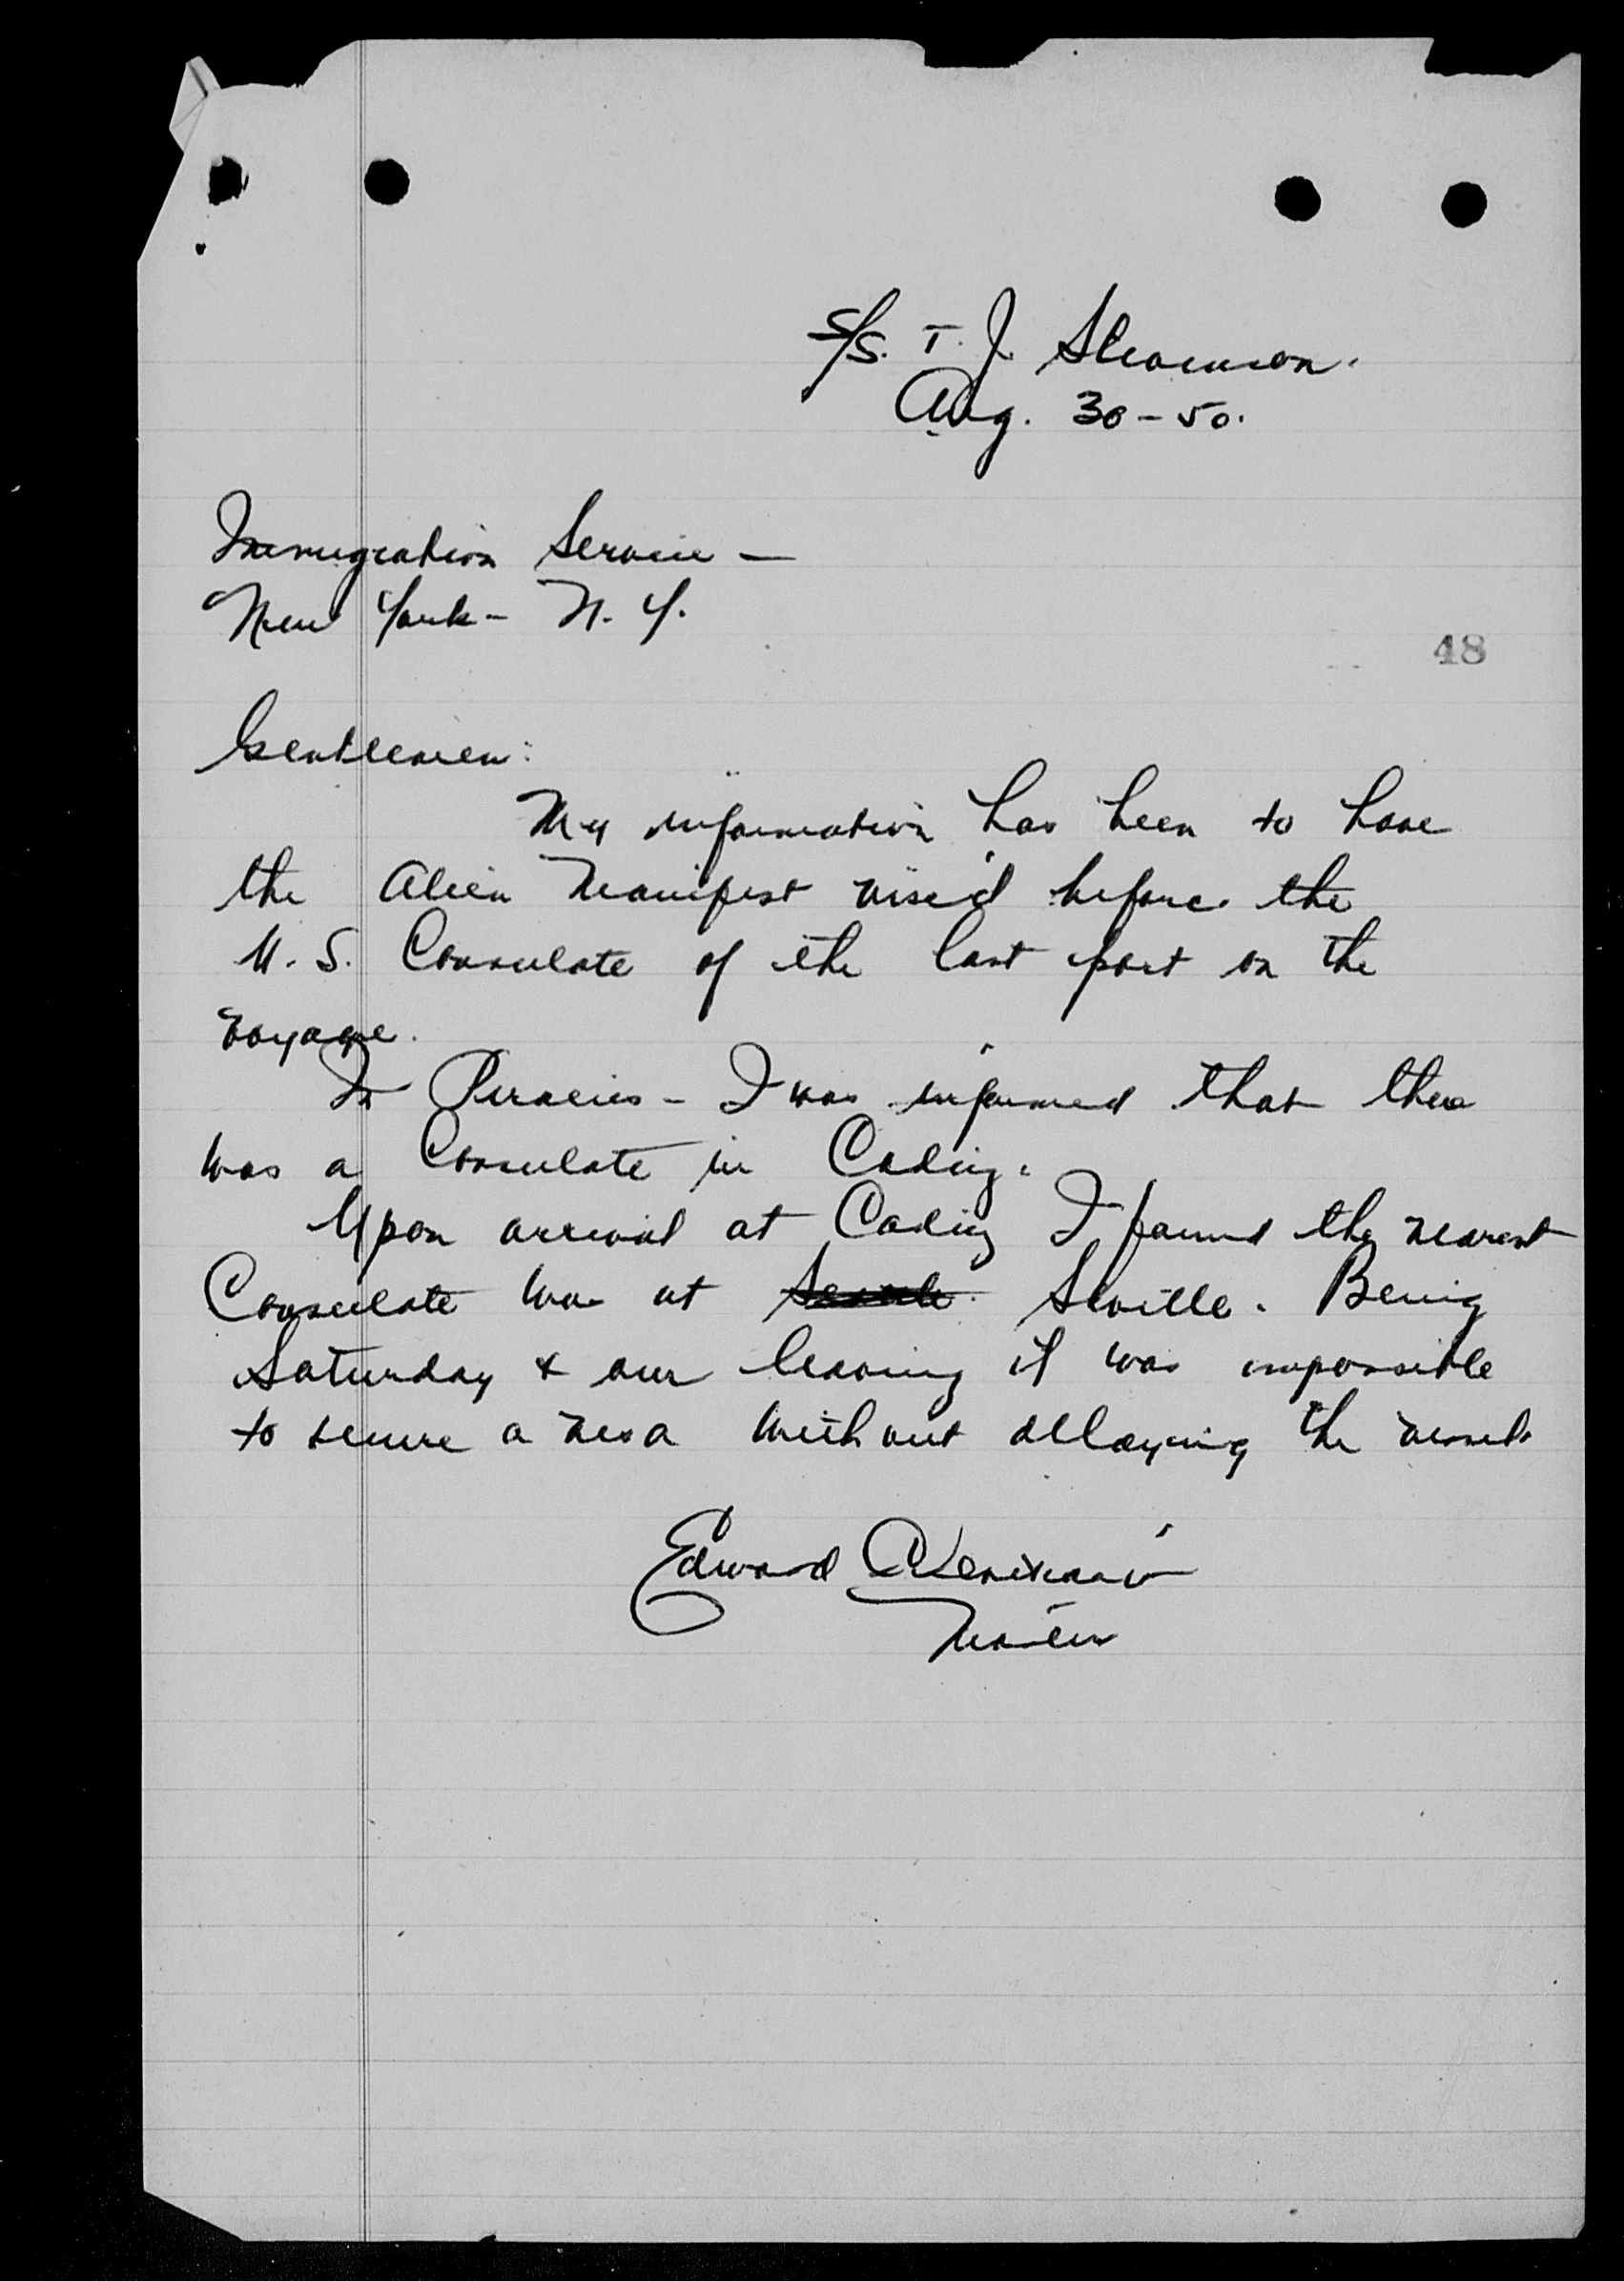 S/S. T. J. Stevenson.
Aug. 30-50.
Immigration Service —
New York - N. Y.
48
Gentlemen:
My information has been to have
the Alien Manifest visé'd before the
U. S. Consulate of the last port on the
voyage.
In Piraeus - I was informed that there
was a Consulate in Cadiz.
Upon arrival at Cadiz I found the nearest
Consulate was at Seville. Being
Saturday & our leaving it was impossible
to secure a visa without delaying the vessel.
Edward
Master